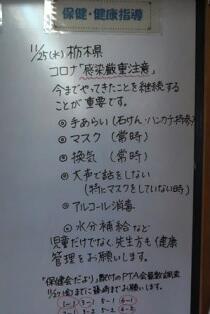 保健・健康指導
11/25(水) 栃木県
コロナ「感染厳重注意」
今までやってきたことを継続する
ことが重要です。
◎手あらい(石けん・ハンカチ持参)
◎マスク(常時)
◎換気(常時)
◎大声で話をしない
(特にマスクをしていない時)
◎アルコール消毒
◎水分補給など
児童だけでなく先生方も健康
管理をお願いします。
「保健会だより」
11/27(金)までに
お願いします。
1-1 3-1 5-1 6-1